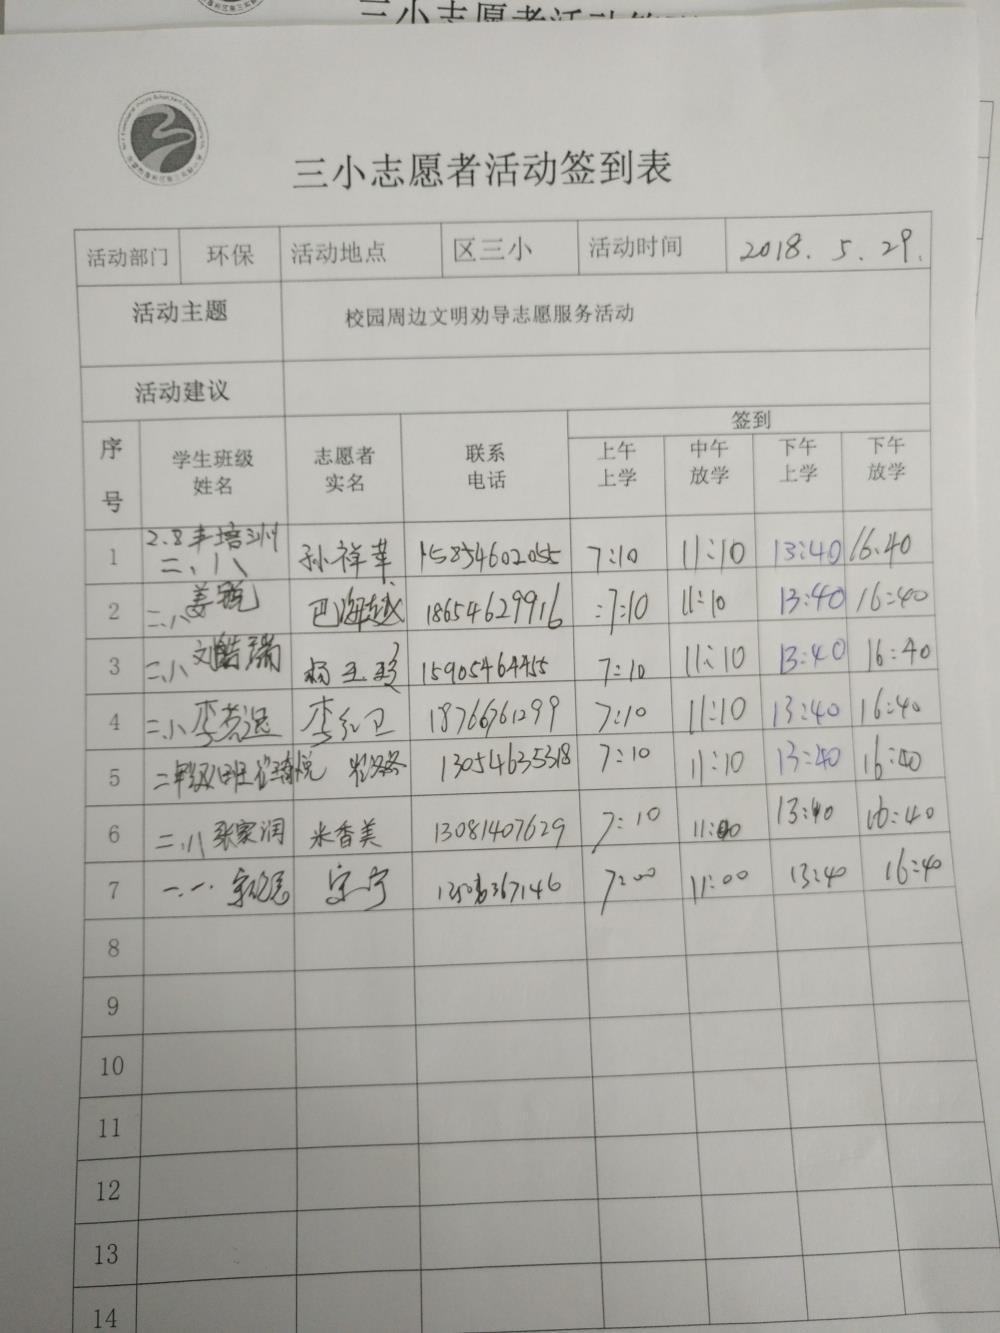 三小志愿者活动签到表
活动部门 环保 活动地点 区三小 活动时间 2018.5.29.
活动主题 校园周边文明劝导志愿服务活动
活动建议
签到
序号 学生班级姓名 志愿者实名 联系电话 上午上学 中午放学 下午上学 下午放学
1 2.8丰培 二、八 孙祥苹 15854602055 7:10 11:10 13:40 16.40
2 二、八 姜 巴海越 18654629916 :7:10 11:10 13:40 16:40
3 二、八 刘皓瑞 杨玉 15905464455 7:10 11:10 13:40 16:40
4 二、八 李 李红卫 18766761299 7:10 11:10 13:40 16:40
5 二年级 班崔琦悦 崔 13054635318 7:10 11:10 13:40 16:40
6 二、八 张家润 米香美 13081407629 7:10 11:00 13:40 16:40
7 一、一 宋 宋宁 367146 7:00 11:00 13:40 16:40
8
9
10
11
12
13
14